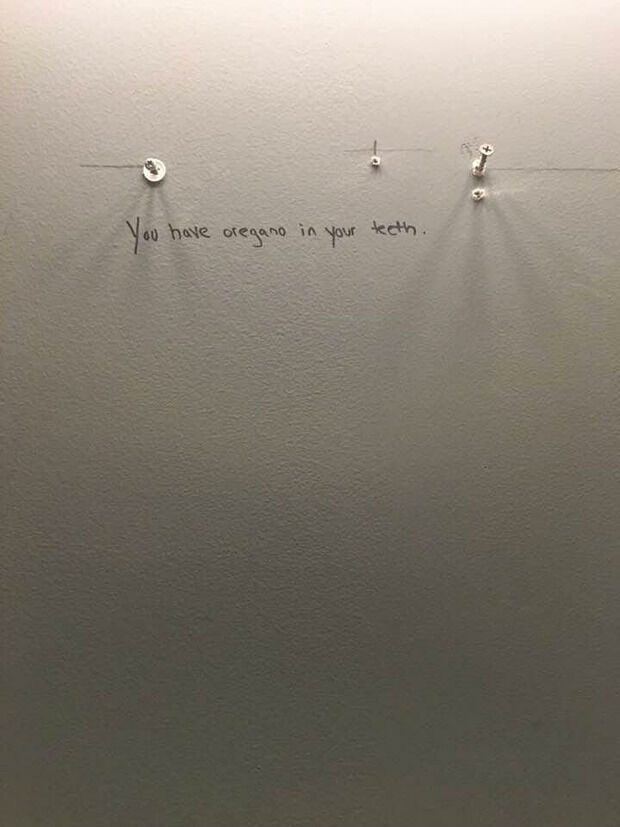 You have oregano in your teeth.